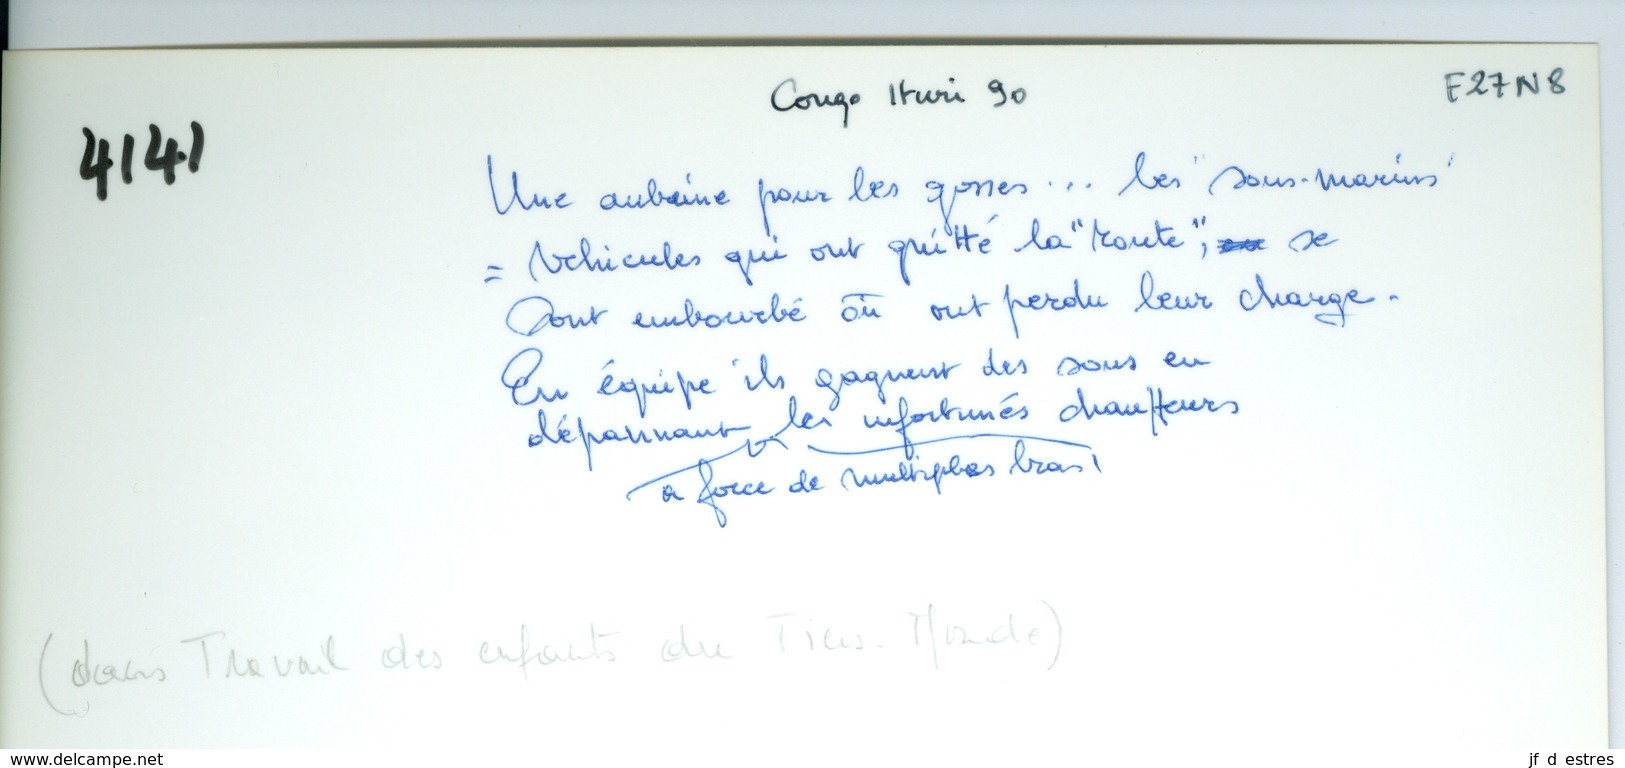 Congo Ituri 90
F27N8
4141
Une aubaine pour les gosses... les "sous-marins"
= véhicules qui ont quitté la "route", se
sont embourbé où ont perdu leur charge.
En équipe ils gagnent des sous en
dépannant les infortunés chauffeurs
a force de multiples bras!
(dans Travail des enfants du Tiers-Monde)
www.delcampe.net
jf d estres